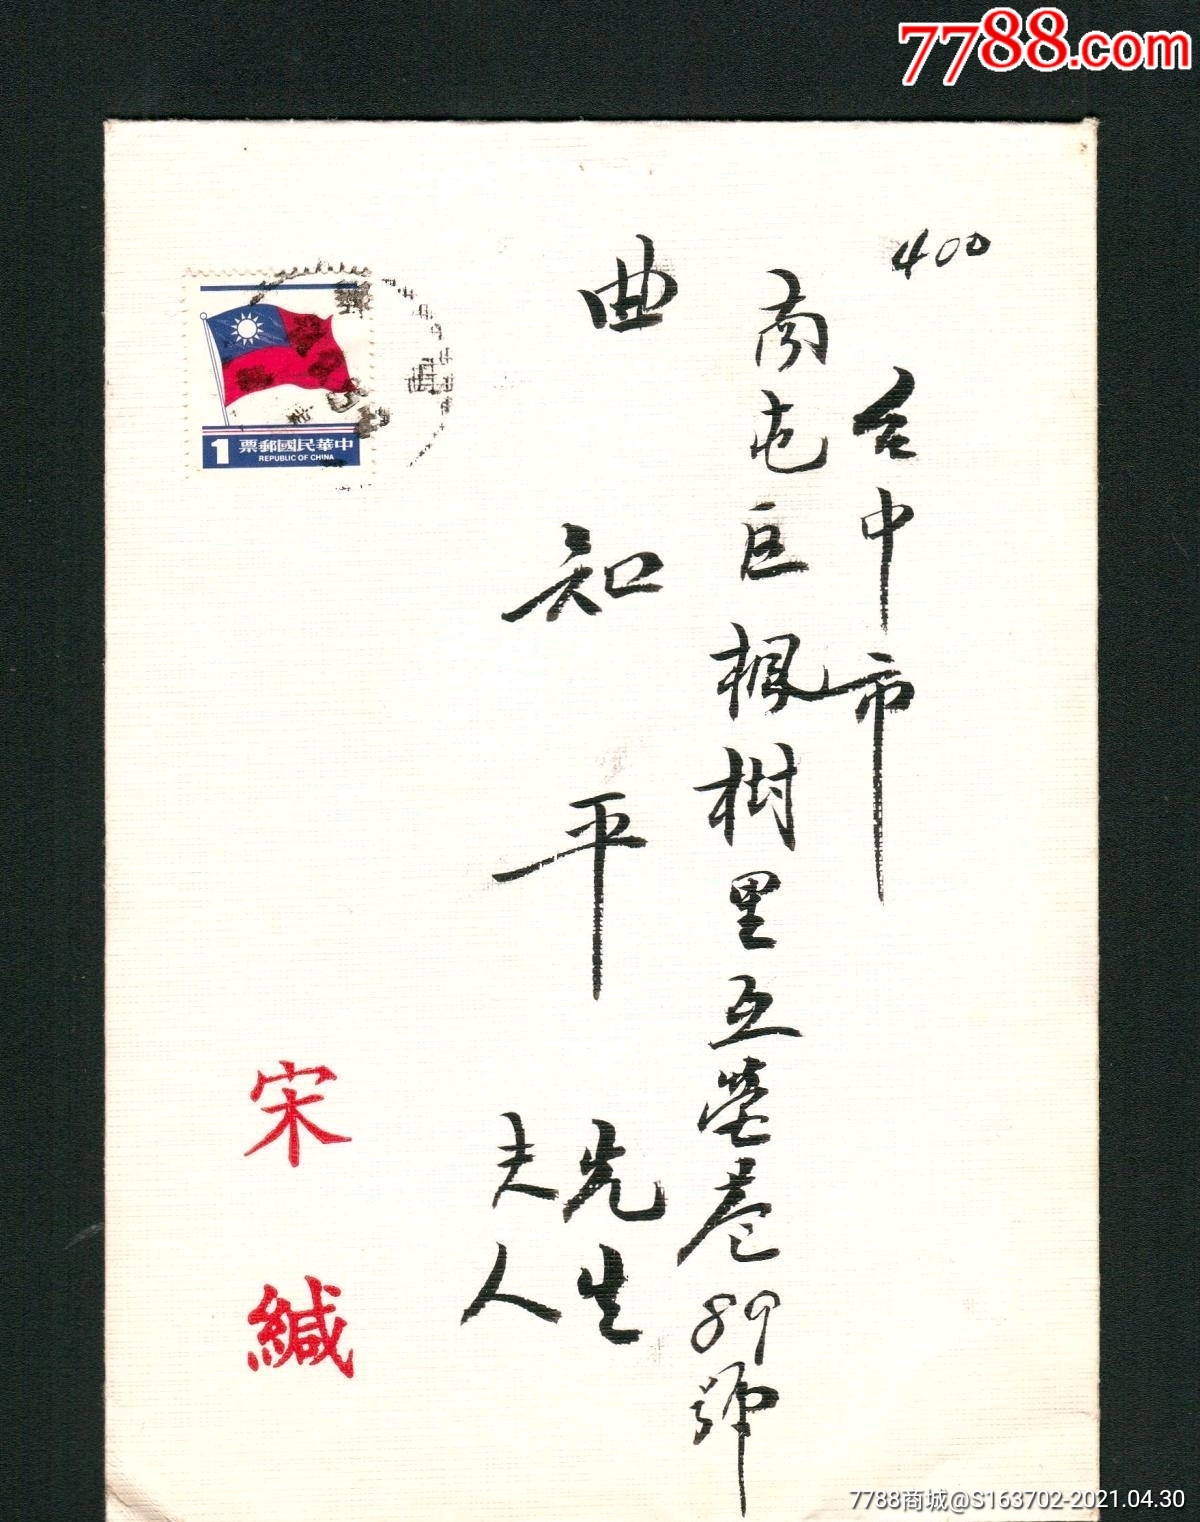 7788.com
400
台中市
南屯區楓樹里互榮巷89號
曲知平先生
夫人
宋緘
中華民國郵票
1
REPUBLIC OF CHINA
7788商城@S163702-2021.04.30